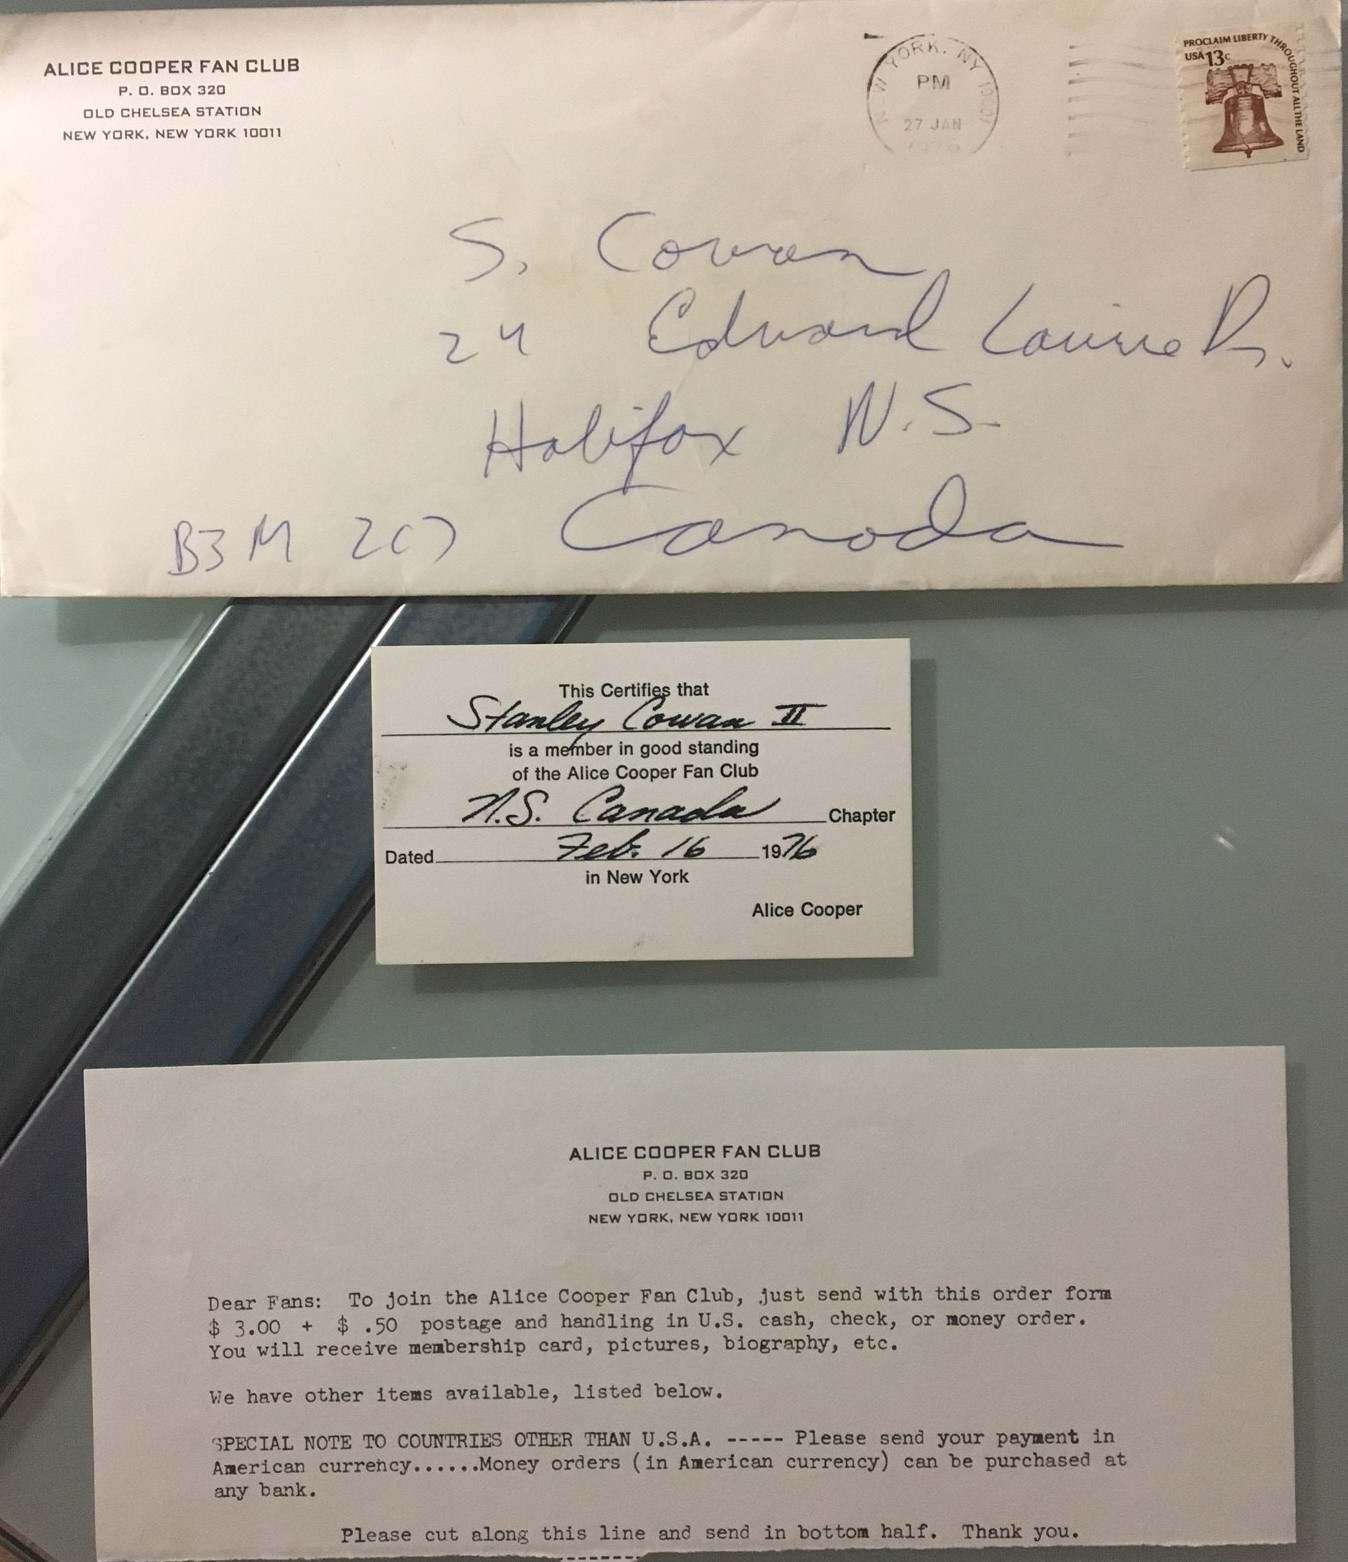 ALICE COOPER FAN CLUB
P. O. BOX 320
OLD CHELSEA STATION
NEW YORK, NEW YORK 10011
NEW YORK, NY
PM
27 JAN
1976
PROCLAIM LIBERTY THROUGHOUT ALL THE LAND
USA 13c
S. Cowan
24 Edward Laurie Dr.
Halifax N.S.
B3M 2C7 Canada
This Certifies that
Stanley Cowan II
is a member in good standing
of the Alice Cooper Fan Club
N.S. Canada Chapter
Dated Feb. 16 1976
in New York
Alice Cooper
ALICE COOPER FAN CLUB
P. O. BOX 320
OLD CHELSEA STATION
NEW YORK, NEW YORK 10011
Dear Fans: To join the Alice Cooper Fan Club, just send with this order form
$ 3.00 + $ .50 postage and handling in U.S. cash, check, or money order.
You will receive membership card, pictures, biography, etc.
We have other items available, listed below.
SPECIAL NOTE TO COUNTRIES OTHER THAN U.S.A. ----- Please send your payment in
American currency......Money orders (in American currency) can be purchased at
any bank.
Please cut along this line and send in bottom half. Thank you.